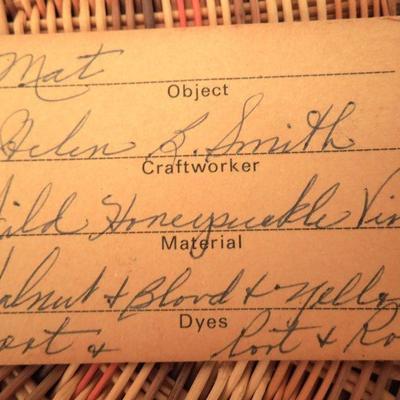 Mat
Object
Helen B. Smith
Craftworker
ild Honeysuckle Vin
Material
alnut & Blood & Yello
Dyes
oot & Root & Ro